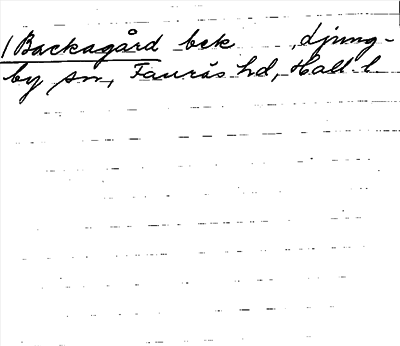 1 Backagård bck , djung-
by sn, Faurås hd, Hall. l